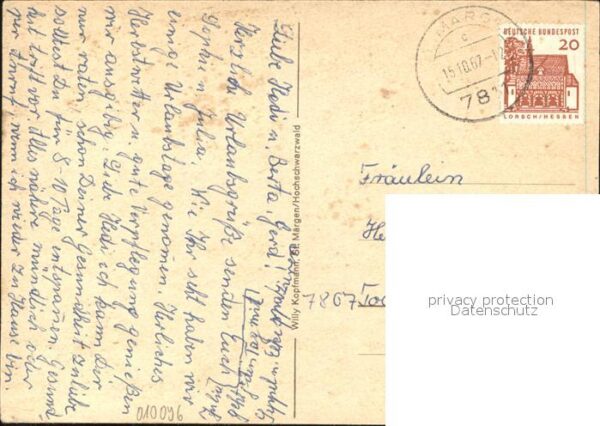 Liebe Hedi u. Berta, Gerd!
Herzliche Urlaubsgrüße senden Euch
Sophie u. Julia. Wie Ihr seht haben wir
einige Urlaubstage genommen. Herrliches
Herbstwetter u. gute Verpflegung genießen
wir ausgiebig. Liebe Hedi ich kann Dir
nur raten, schon Deiner Gesundheit zuliebe
solltest Du für 8-10 Tage entspannen. Gesund
vor allem nähere mündlich oder
wenn ich wieder zu Hause bin.
010096
Willy Kopfmann, St. Märgen/Hochschwarzwald
MÄRGEN
c
15.10.67-12
781
DEUTSCHE BUNDESPOST
20
LORSCH/HESSEN
Fräulein
He
7867
privacy protection
Datenschutz